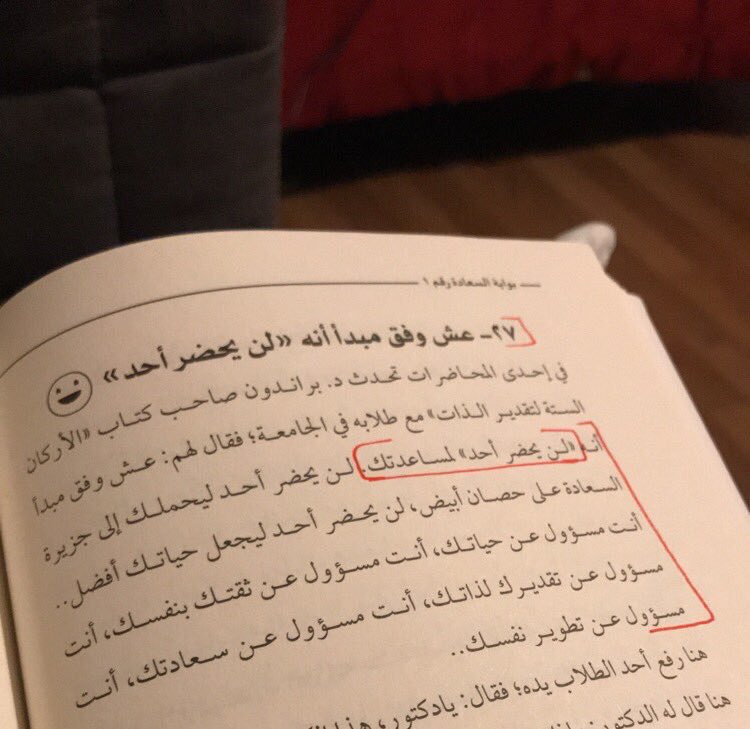 بوابة السعادة رقم ١
٢٧- عش وفق مبدأ أنه «لن يحضر أحد»
في إحدى المحاضرات تحدث د. براندون صاحب كتاب «الأركان
الستة لتقدير الذات» مع طلابه في الجامعة؛ فقال لهم: عش وفق مبدأ
أنه «لن يحضر أحد» لمساعدتك. لن يحضر أحد ليحملك إلى جزيرة
السعادة على حصان أبيض، لن يحضر أحد ليجعل حياتك أفضل..
أنت مسؤول عن حياتك، أنت مسؤول عن ثقتك بنفسك، أنت
مسؤول عن تقديرك لذاتك، أنت مسؤول عن سعادتك، أنت
مسؤول عن تطوير نفسك..
هنا رفع أحد الطلاب يده؛ فقال: يادكتور،
هنا قال له الدكتور